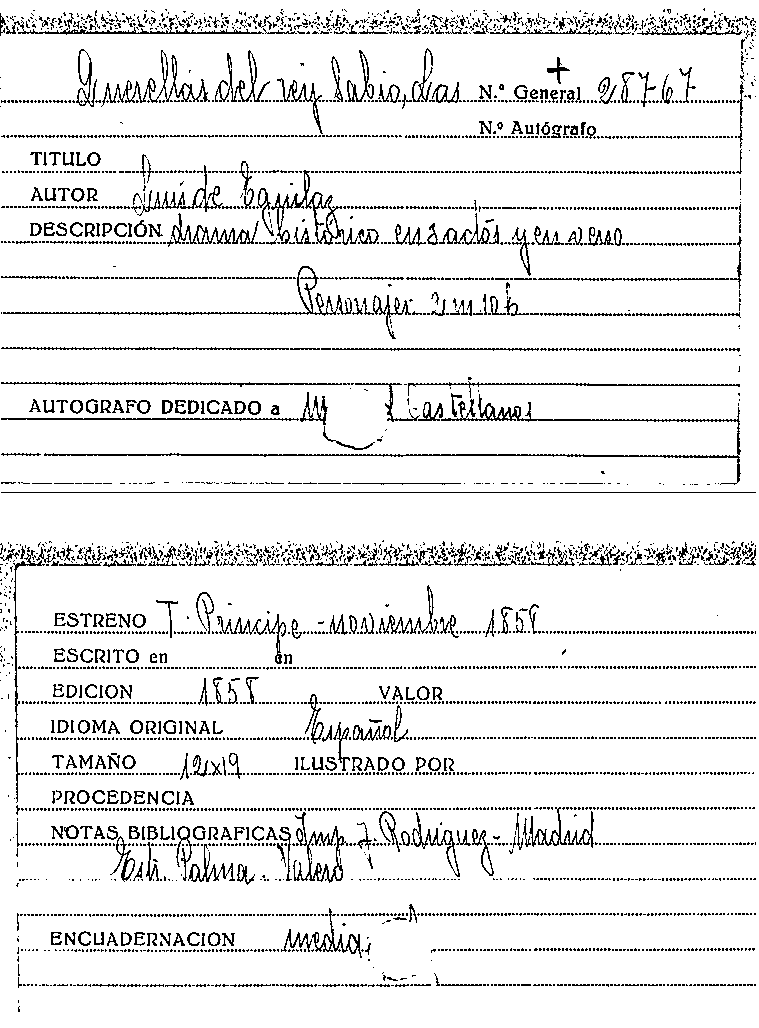 Querellas del rey Sabio, Las N.º General 28767
N.º Autógrafo
TITULO
AUTOR Luis de Eguilaz
DESCRIPCIÓN drama histórico en 3 actos y en verso
Personajes 2 m 10 h
AUTOGRAFO DEDICADO a Castellanos
ESTRENO T. Principe - noviembre 1858
ESCRITO en en
EDICION 1858 VALOR
IDIOMA ORIGINAL Español
TAMAÑO 12x19 ILUSTRADO POR
PROCEDENCIA
NOTAS BIBLIOGRAFICAS Imp. J. Rodriguez - Madrid
Estr. Palma - Valero
ENCUADERNACION media